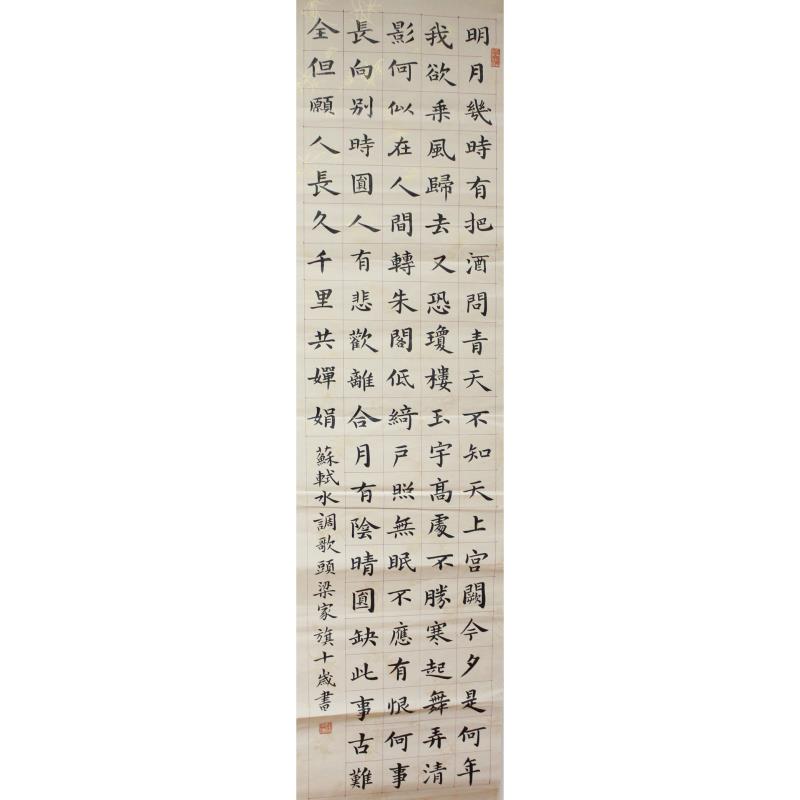 明月幾時有把酒問青天不知天上宮闕今夕是何年
我欲乘風歸去又恐瓊樓玉宇高處不勝寒起舞弄清
影何似在人間轉朱閣低綺戶照無眠不應有恨何事
長向別時圓人有悲歡離合月有陰晴圓缺此事古難
全但願人長久千里共嬋娟
蘇軾水調歌頭梁家旗十歲書